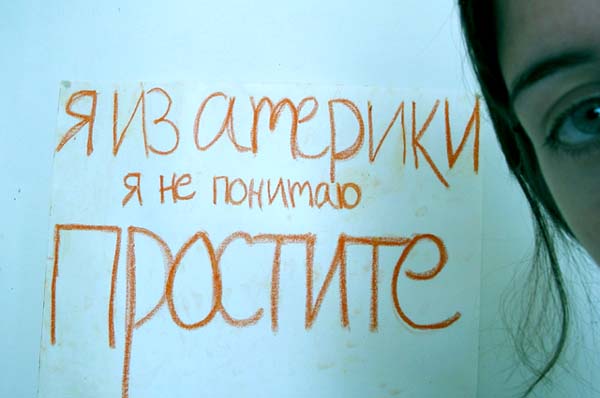 я из америки
я не понимаю
простите